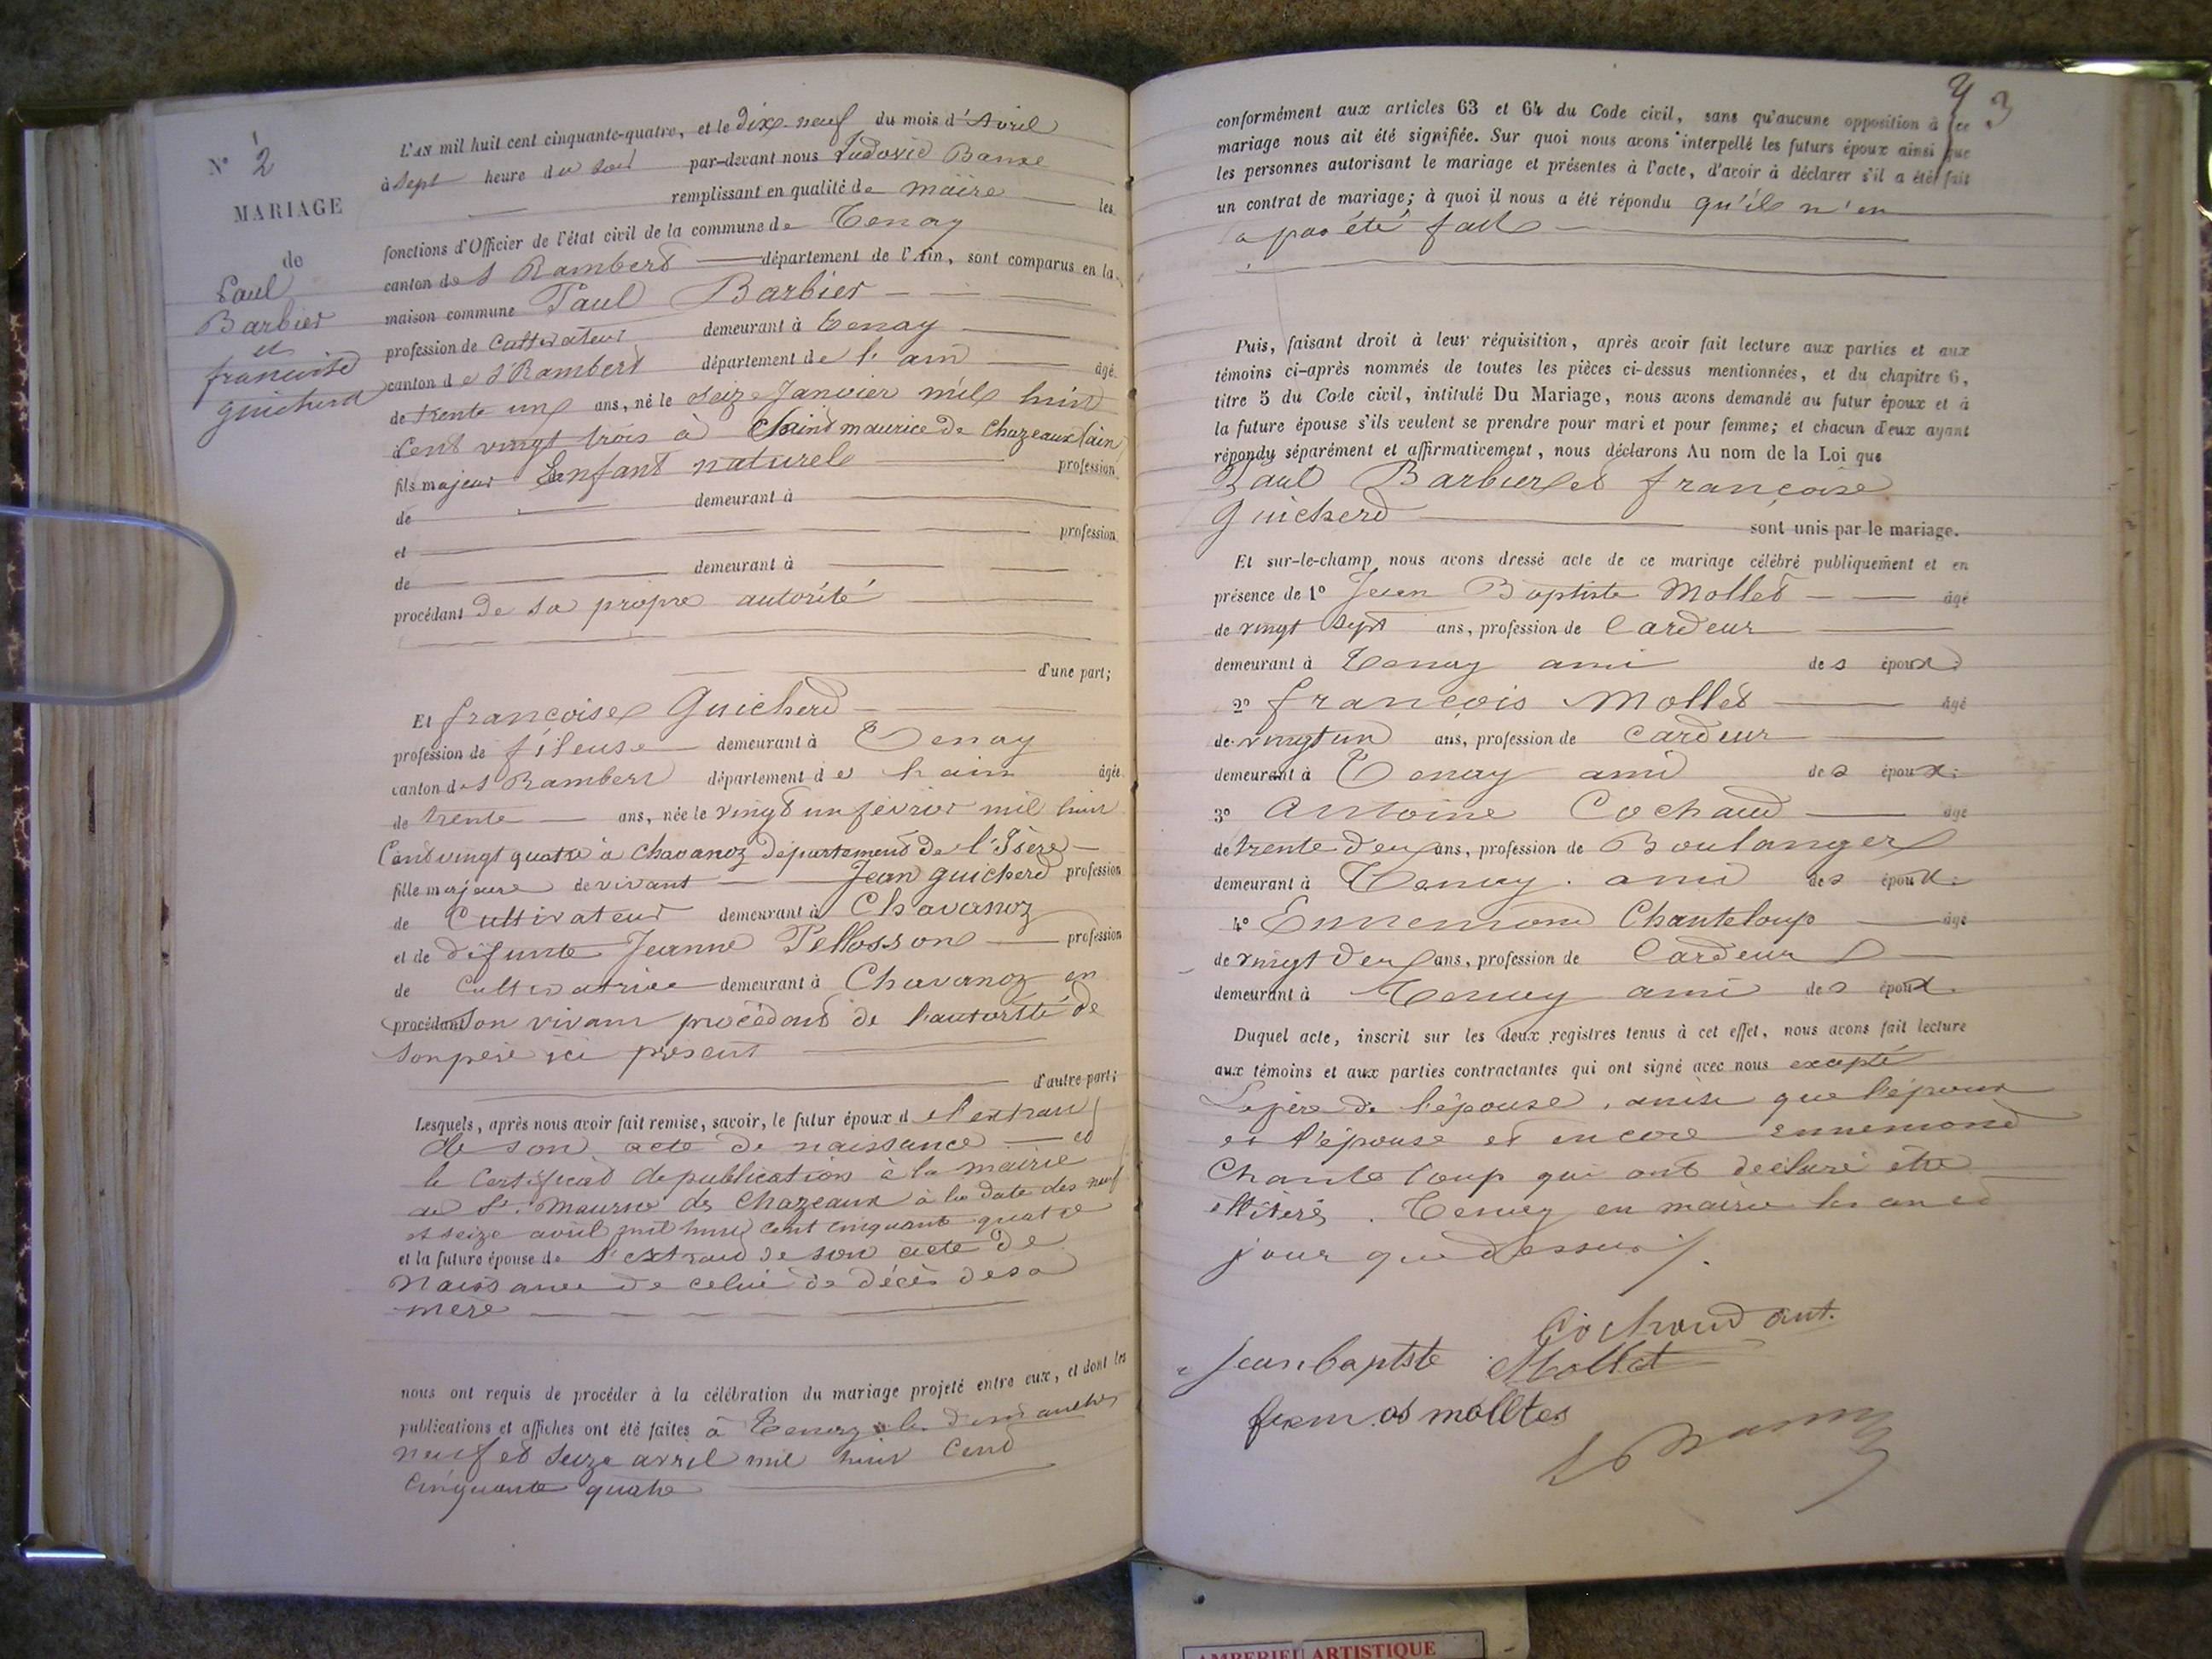 N° 2
MARIAGE
de
Paul
Barbier
et
francoise
guicherd
L'AN mil huit cent cinquante-quatre, et le dix-neuf du mois d'Avril
à sept heure du soir par-devant nous Ludovic
remplissant en qualité de maire les
fonctions d'Officier de l'état civil de la commune de Tenay
canton de St Rambert département de l'Ain, sont comparus en la
maison commune Paul Barbier
profession de Cultivateur demeurant à Tenay
canton de St Rambert département de l'ain âgé
de trente un ans, né le seize Janvier mil huit
Cent vingt trois à Saint maurice de Chazeaux (ain
fils majeur Enfant naturel profession
de demeurant à
et profession
de demeurant à
procédant de sa propre autorité
d'une part;
Et françoise Guicherd
profession de fileuse demeurant à Tenay
canton de St Rambert département de l'ain âgée
de trente ans, née le vingt un février mil huit
Cent vingt quatre à Chavanoz département de l'Isère
fille majeure de vivant Jean guicherd profession
de Cultivateur demeurant à Chavanoz
et de défunte Jeanne Pellosson profession
de Cultivatrice demeurant à Chavanoz en
procédant son vivant procédant de l'autorité de
son père ici présent
d'autre part;
Lesquels, après nous avoir fait remise, savoir, le futur époux de l'extrait
de son acte de naissance et
le Certificat de publication à la mairie
de St. Maurice de Chazeaux à la date des neuf
et seize avril mil huit cent cinquante quatre
et la future épouse de l'extrait de son acte de
Naissance de celui de décès de sa
mère
nous ont requis de procéder à la célébration du mariage projeté entre eux, et dont les
publications et affiches ont été faites à Tenay les dimanches
neuf et seize avril mil huit Cent
Cinquante quatre
3
conformément aux articles 63 et 64 du Code civil, sans qu'aucune opposition à ce
mariage nous ait été signifiée. Sur quoi nous avons interpellé les futurs époux ainsi que
les personnes autorisant le mariage et présentes à l'acte, d'avoir à déclarer s'il a été fait
un contrat de mariage; à quoi il nous a été répondu qu'il n'en
a pas été fait
Puis, faisant droit à leur réquisition, après avoir fait lecture aux parties et aux
témoins ci-après nommés de toutes les pièces ci-dessus mentionnées, et du chapitre 6,
titre 5 du Code civil, intitulé Du Mariage, nous avons demandé au futur époux et à
la future épouse s'ils veulent se prendre pour mari et pour femme; et chacun d'eux ayant
répondu séparément et affirmativement, nous déclarons Au nom de la Loi que
Paul Barbier et françoise
Guicherd sont unis par le mariage.
Et sur-le-champ nous avons dressé acte de ce mariage célébré publiquement et en
présence de 1° Jean Baptiste Mollet âgé
de vingt sept ans, profession de Cardeur
demeurant à Tenay ami des époux;
2° françois Mollet âgé
de vingt un ans, profession de Cardeur
demeurant à Tenay ami des époux;
3° Antoine Cochaud âgé
de trente deux ans, profession de Boulanger
demeurant à Tenay ami des époux;
4° Ennemond Chanteloup âgé
de vingt deux ans, profession de Cardeur
demeurant à Tenay ami des époux.
Duquel acte, inscrit sur les deux registres tenus à cet effet, nous avons fait lecture
aux témoins et aux parties contractantes qui ont signé avec nous excepté
Le père de l'épouse, ainsi que l'époux
et l'épouse et encore ennemond
Chanteloup qui ont déclaré être
illitérés. Tenay en mairie les an et
jour que dessus.
Cochaud ant.
Jean baptste Mollet
AMBERIEU ARTISTIQUE